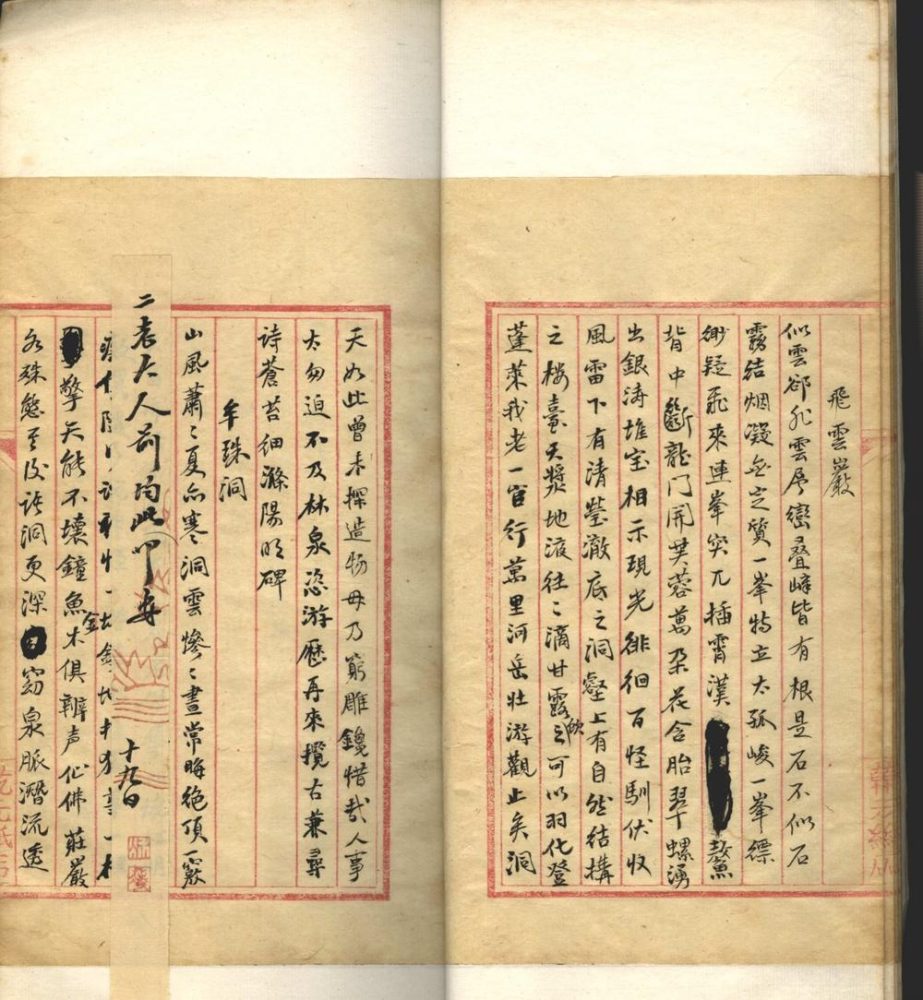 飛雲巖
似雲卻非雲層巒叠嶂皆有根是石不似石
霧結烟凝無定質一峯特立太孤峻一峯縹
緲疑飛來連峯突兀插霄漢鰲
背中斷龍門開芙蓉萬朶花含胎翠螺湧
出銀涛堆宝相示現光徘徊百怪馴伏收
風雷下有清瑩澈底之洞壑上有自然结搆
之楼臺天漿地液往々滴甘露飲之可以羽化登
蓬莱我老一官行萬里河岳壮游觀止矣洞
天如此曾未探造物毋乃窮雕鑱惜哉人事
太匆迫不及林泉恣游歷再來攬古兼尋
诗蒼苔细滌陽明碑
牟珠洞
山風蕭々夏亦寒洞雲惨々晝常晦绝頂一竅
二老大人前均此叩安
十九日
擎天能不壊鐘魚木金俱辦声仙佛莊嚴
各殊態至後诸洞更深窈泉脈潛流透